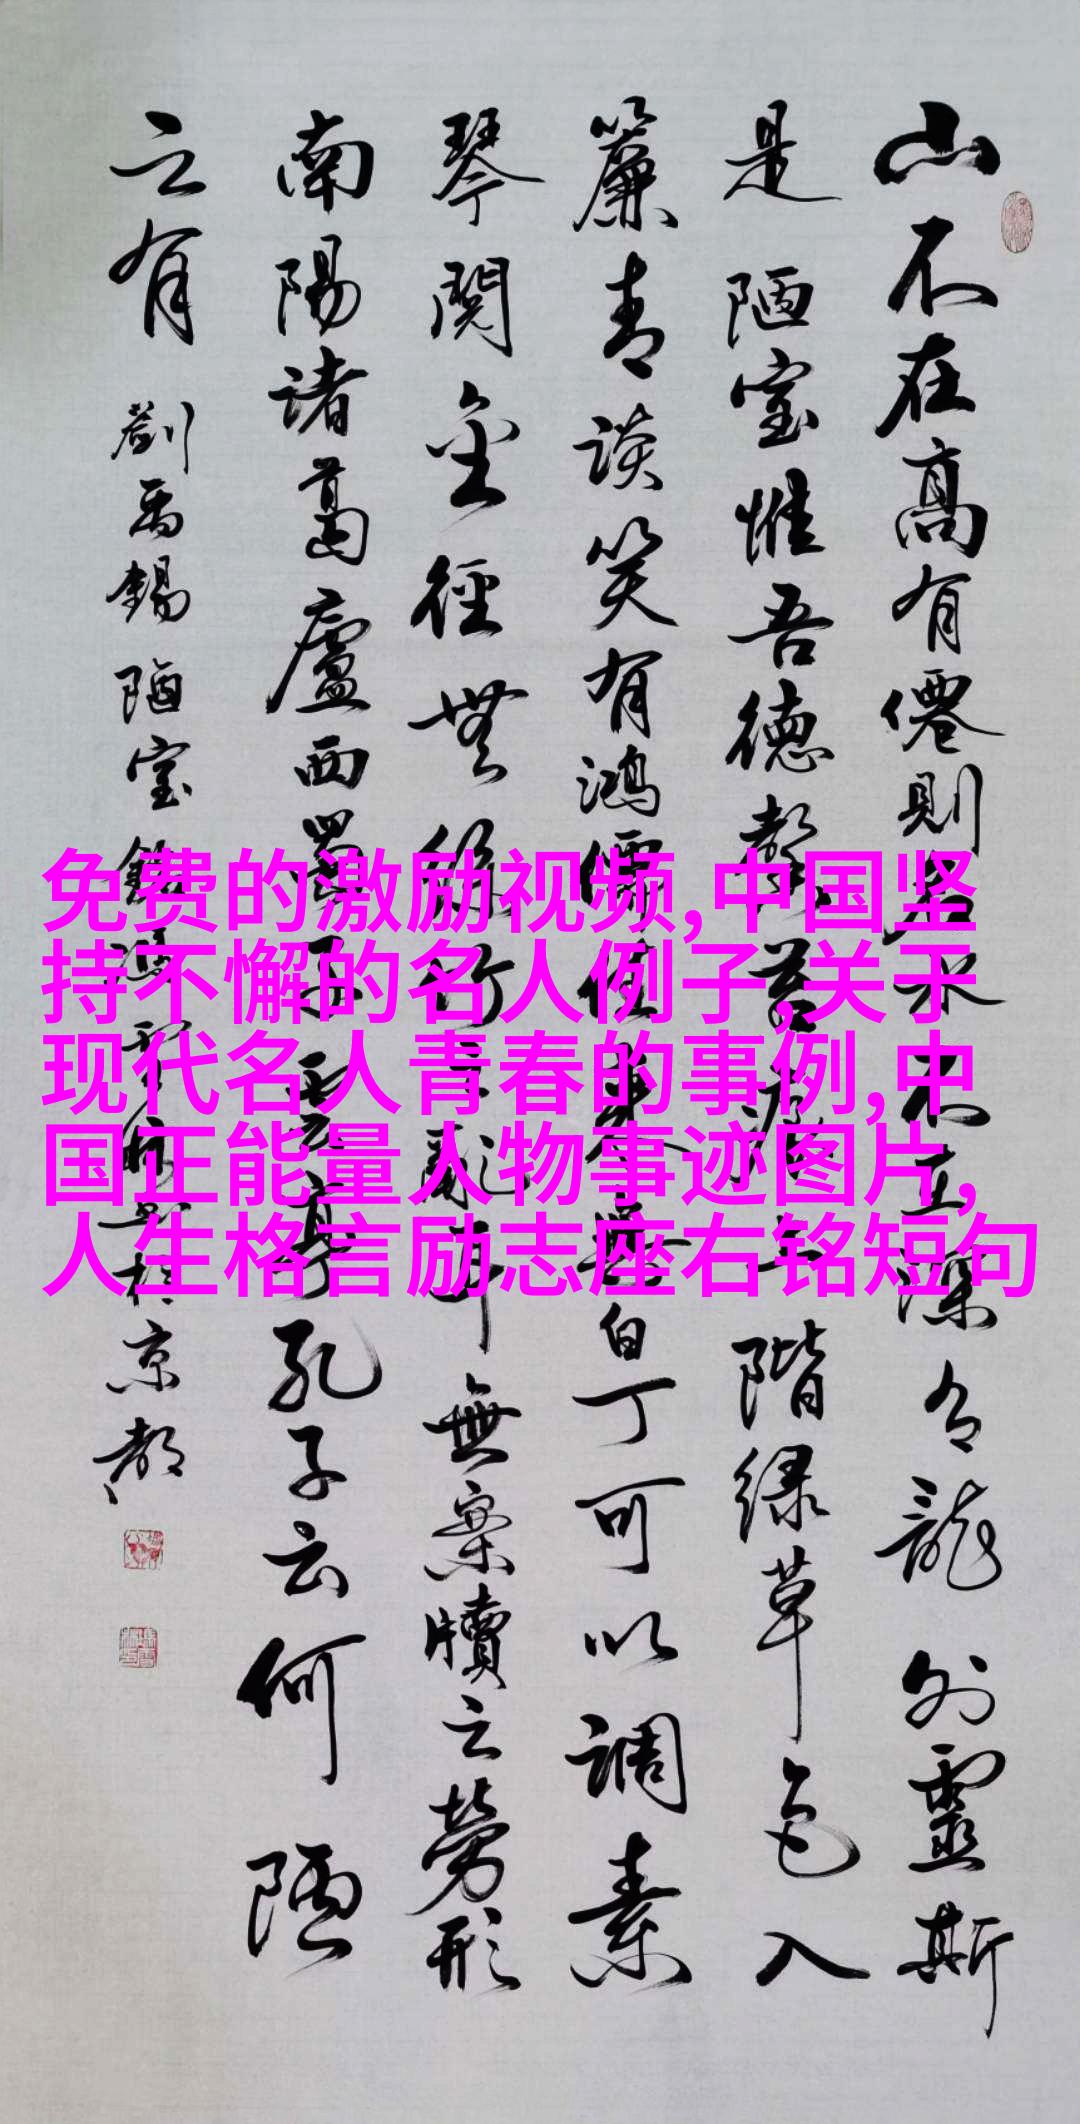 山不在高有僊則名水不在深有龍則靈斯
是陋室惟吾德馨苔痕上階緑草色入
簾青談笑有鴻儒往來無白丁可以調素
琴閱金徑無絲竹之亂耳無案牘之勞形
南陽諸葛廬西蜀子雲亭孔子云何陋
之有 劉禹錫陋室銘 於京都
免费的激励视频,中国坚
持不懈的名人例子,关于
现代名人青春的事例,中
国正能量人物事迹图片,
人生格言励志座右铭短句